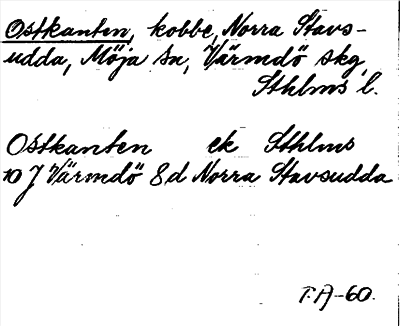 Ostkanten, kobbe, Norra Stavs-
udda, Möja sn, Värmdö skg
Sthlms l.
Ostkanten ek Sthlms
10 J Värmdö 8 d Norra Stavsudda
T.A-60.